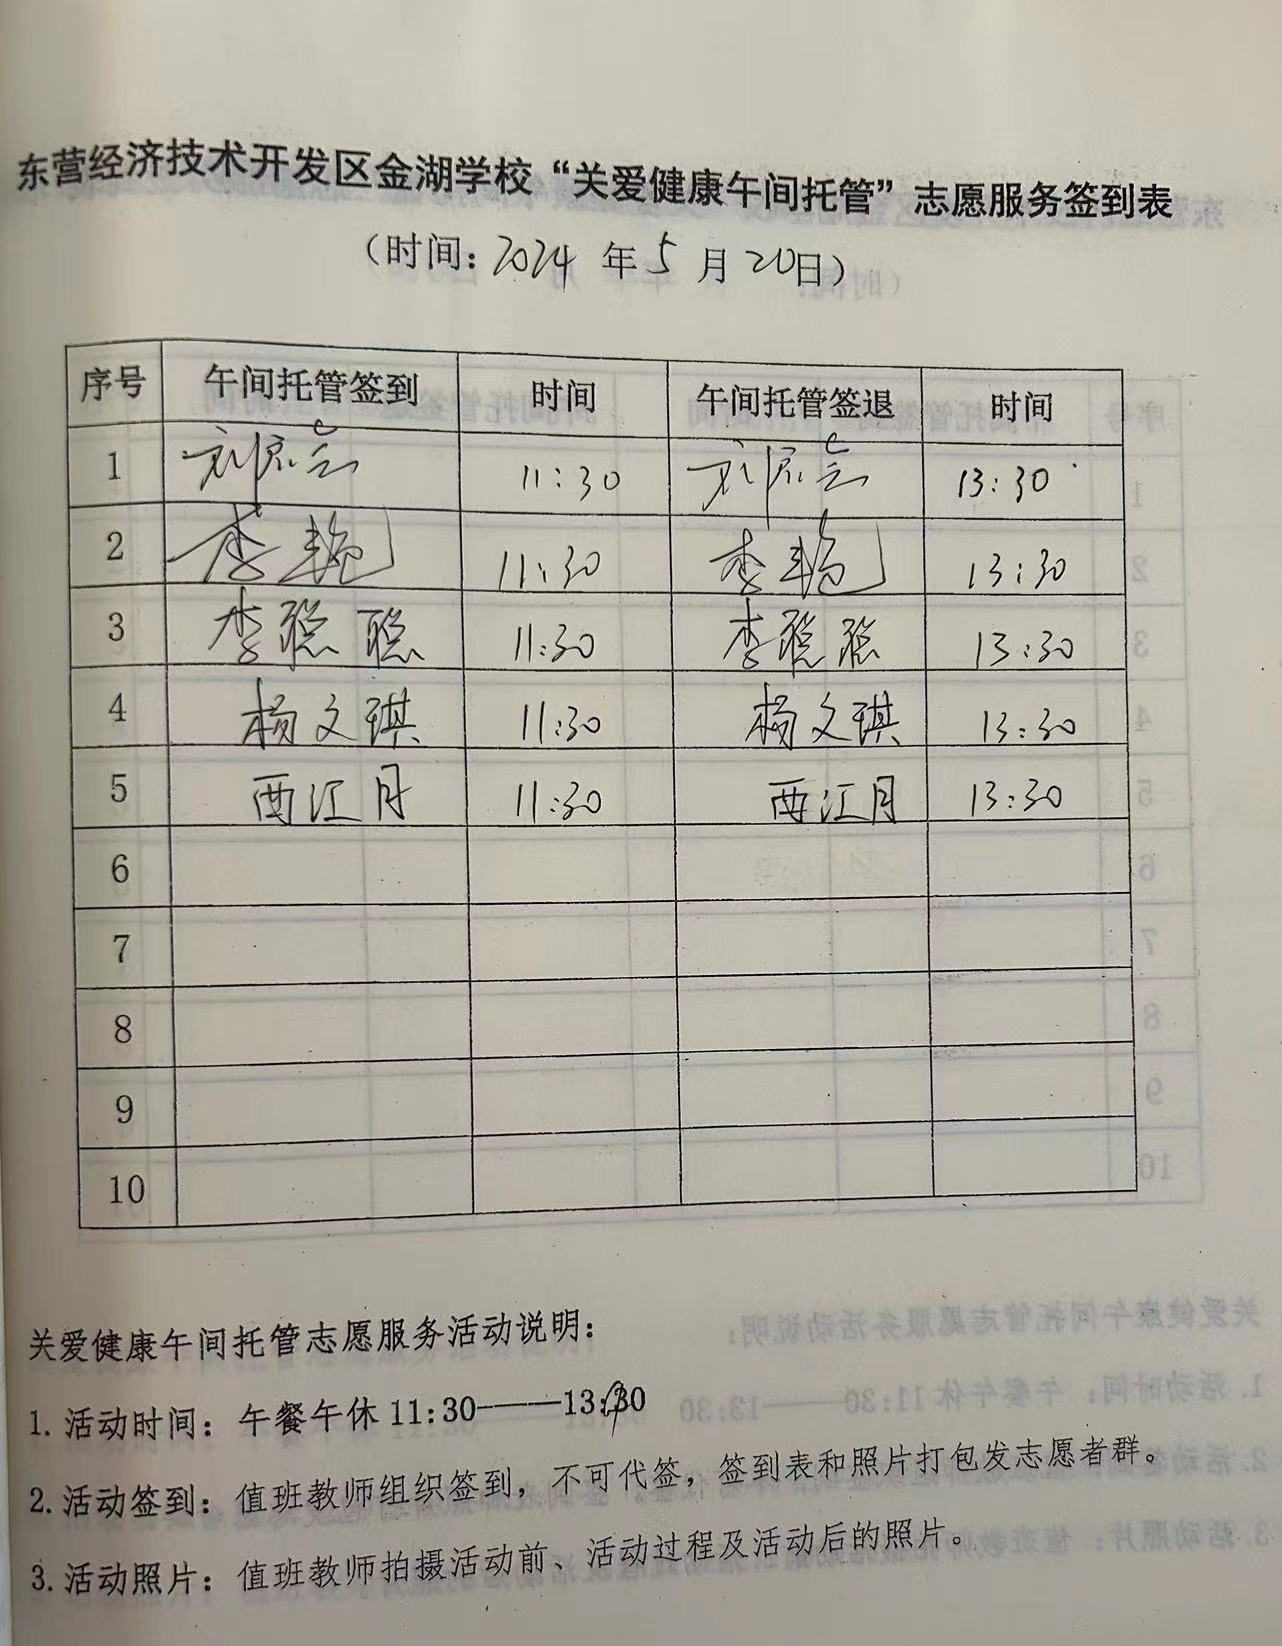 东营经济技术开发区金湖学校“关爱健康午间托管”志愿服务签到表
（时间：2024 年 5 月 20日）
序号 午间托管签到 时间 午间托管签退 时间
1 11:30 13:30
2 李艳 11:30 李艳 13:30
3 李聪聪 11:30 李聪聪 13:30
4 杨文琪 11:30 杨文琪 13:30
5 西江月 11:30 西江月 13:30
6
7
8
9
10
关爱健康午间托管志愿服务活动说明：
1. 活动时间：午餐午休 11:30——13:30
2. 活动签到：值班教师组织签到，不可代签，签到表和照片打包发志愿者群。
3. 活动照片：值班教师拍摄活动前、活动过程及活动后的照片。